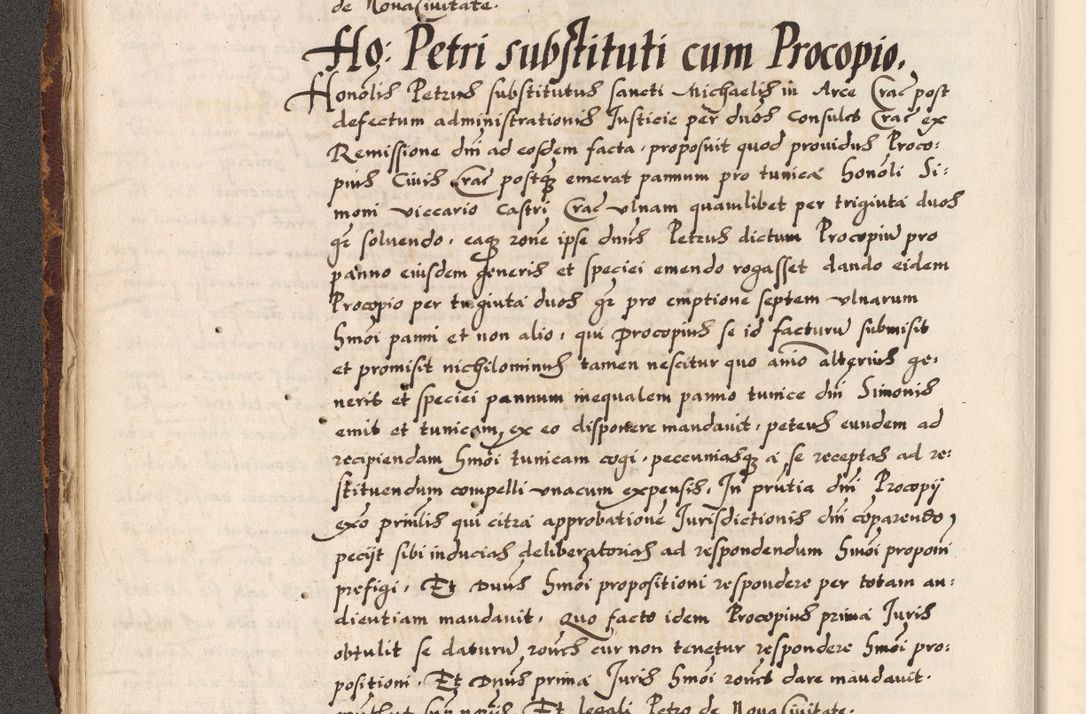 de Nova Civitate.
Ho: Petri substituti cum Procopio.
Honolis Petrus substitutus sancti Michaelis in Arce Crac post
defectum administrationis Iusticie per duos Consules Crac ex
Remissione dni ad eosdem facta, proposuit quod providus Proco:
pius Civis Crac postq emerat pannum pro tunica honoli Si:
moni viccario Castri Crac ulnam quamlibet per triginta duos
gr solvendo, eaq rone ipse dnus Petrus dictum Procopiu pro
panno eiusdem generis et speciei emendo rogasset dando eidem
Procopio per triginta duos gr pro emptione septem ulnarum
hmoi panni et non alio, qui Procopius se id facturu submisit
et promisit nichilominus tamen nescitur quo anio alterius ge:
neris et speciei pannum inequalem panno tunice dni Simonis
emit et tunicam ex eo disponere mandavit, petens eundem ad
recipiendam hmoi tunicam cogi, pecuniasq a se receptas ad re:
stituendum compelli unacum expensis, In pntia dni Procopij
exo prinlis qui citra approbatione Iurisdictionis dni coparendo,
pecijt sibi inducias deliberatorias ad respondendum hmoi proponi
prefigi. Et Dnus hmoi propositioni respondere per totam au:
dientiam mandavit, Quo facto idem Procopius prima Iuris
obtulit se daturu rones cur non tenetur respondere hmoi pro:
positioni. Et Dnus prima Iuris hmoi rones dare mandavit.
Et legali Petro de Nova Civitate.